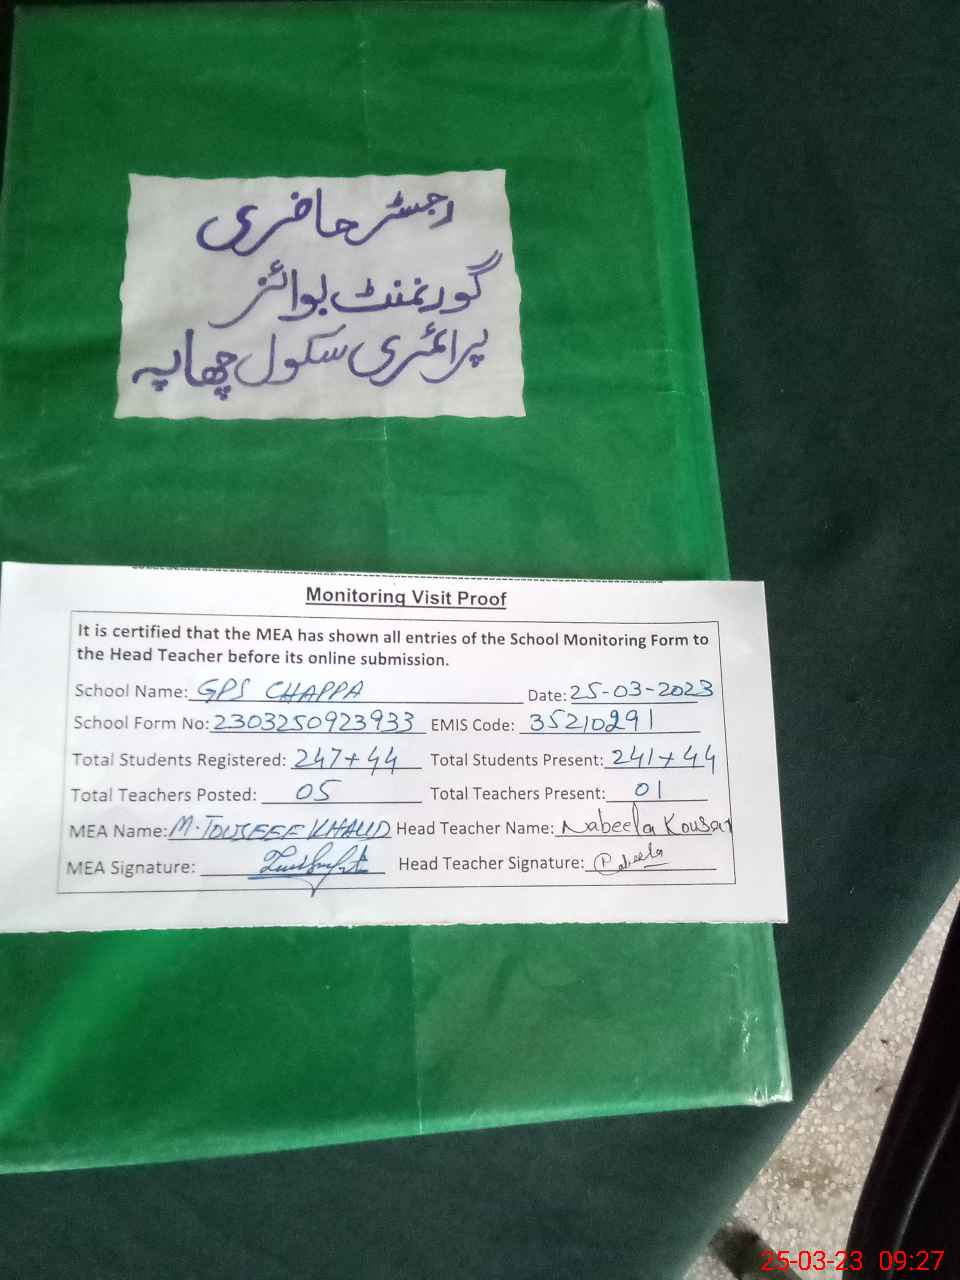 رجسٹر حاضری
گورنمنٹ بوائز
پرائمری سکول چھاپہ
Monitoring Visit Proof
It is certified that the MEA has shown all entries of the School Monitoring Form to
the Head Teacher before its online submission.
School Name: GPS CHAPPA Date: 25-03-2023
School Form No: 2303250923933 EMIS Code: 35210291
Total Students Registered: 247+44 Total Students Present: 241+44
Total Teachers Posted: 05 Total Teachers Present: 01
MEA Name: M. TOUSEEF KHALID Head Teacher Name: Nabeela Kousar
MEA Signature: Head Teacher Signature: Nabeela
25-03-23 09:27